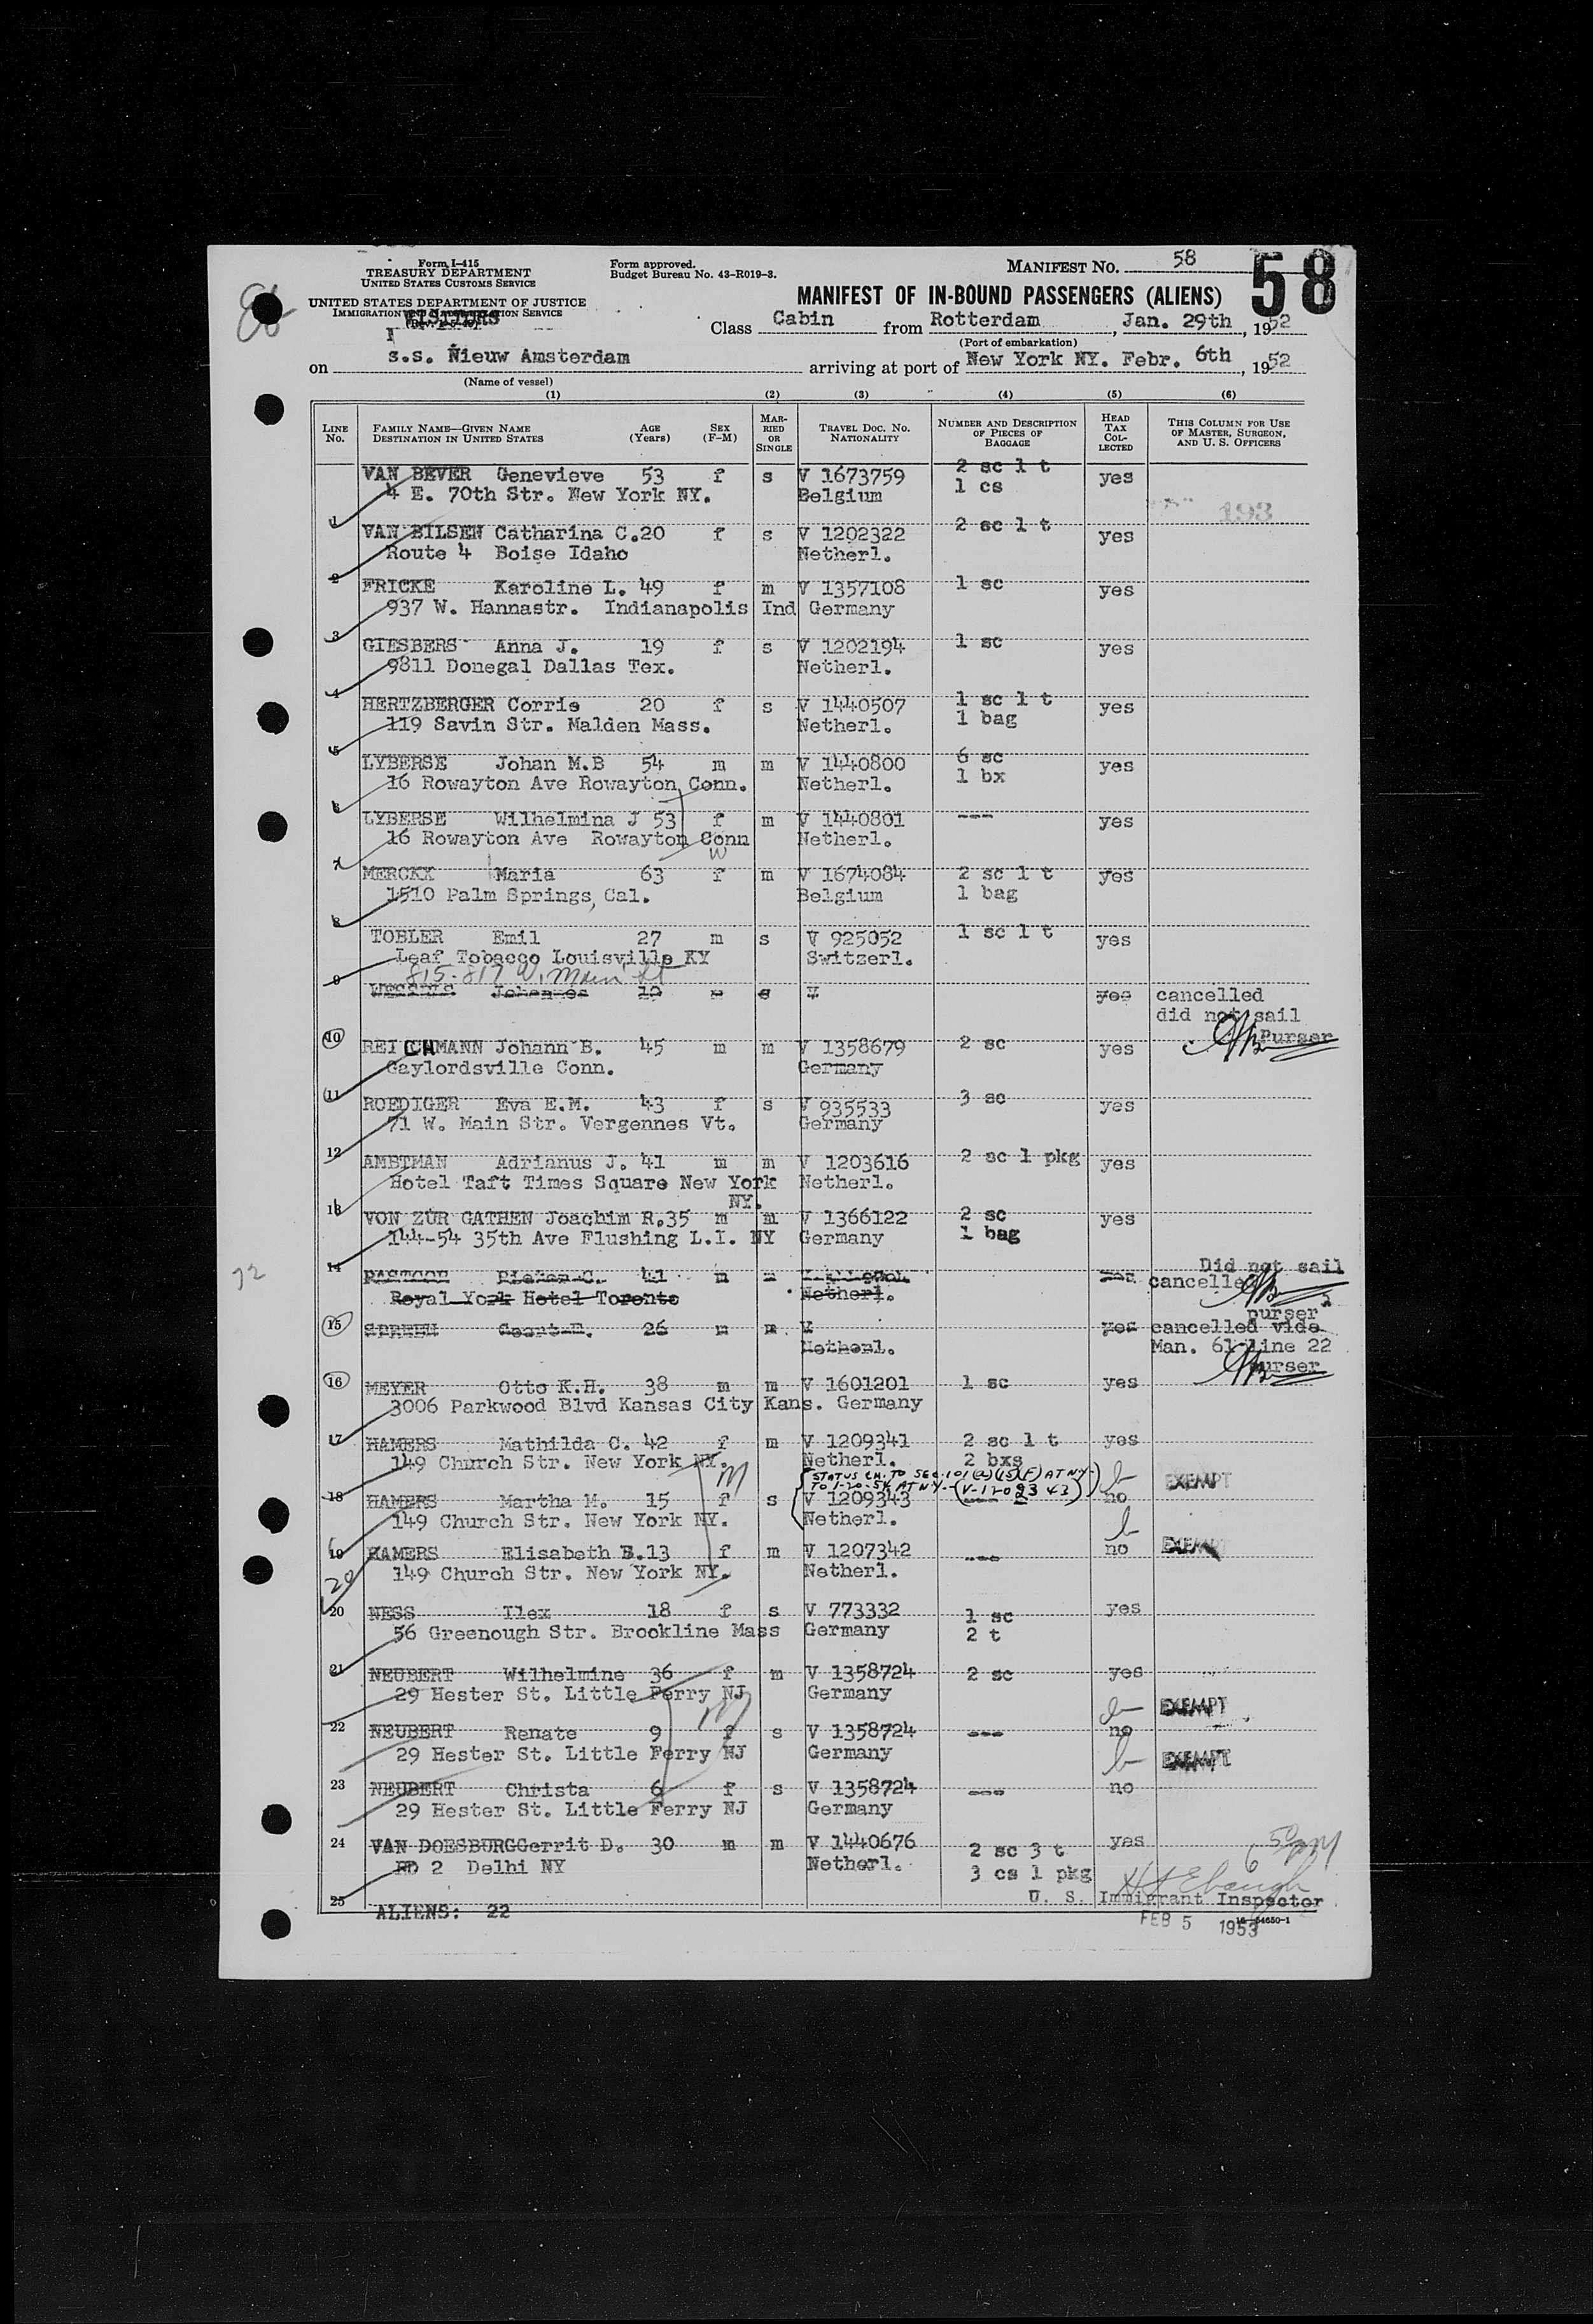 Form I-415
TREASURY DEPARTMENT
UNITED STATES CUSTOMS SERVICE
UNITED STATES DEPARTMENT OF JUSTICE
IMMIGRATION AND NATURALIZATION SERVICE
VISITORS
Form approved.
Budget Bureau No. 43-R019-3.
MANIFEST No. 58
58
MANIFEST OF IN-BOUND PASSENGERS (ALIENS)
Class Cabin from Rotterdam, Jan. 29th, 1952
(Port of embarkation)
on s.s. Nieuw Amsterdam arriving at port of New York NY. Febr. 6th, 1952
(Name of vessel)
(1) (2) (3) (4) (5) (6)
LINE No. FAMILY NAME—GIVEN NAME DESTINATION IN UNITED STATES AGE (Years) SEX (F-M) MARRIED OR SINGLE TRAVEL DOC. No. NATIONALITY NUMBER AND DESCRIPTION OF PIECES OF BAGGAGE HEAD TAX COLLECTED THIS COLUMN FOR USE OF MASTER, SURGEON, AND U. S. OFFICERS
VAN BEVER Genevieve 53 f s V 1673759 2 sc 1 t yes
4 E. 70th Str. New York NY. Belgium 1 cs
193
1
VAN BILSEN Catharina C. 20 f s V 1202322 2 sc 1 t yes
Route 4 Boise Idaho Netherl.
2
FRICKE Karoline L. 49 f m V 1357108 1 sc yes
937 W. Hannastr. Indianapolis Ind Germany
3
GIESBERS Anna J. 19 f s V 1202194 1 sc yes
9811 Donegal Dallas Tex. Netherl.
4
HERTZBERGER Corrie 20 f s V 1440507 1 sc 1 t yes
119 Savin Str. Malden Mass. Netherl. 1 bag
5
LYBERSE Johan M.B 54 m m V 1440800 6 sc yes
16 Rowayton Ave Rowayton Conn. Netherl. 1 bx
6
LYBERSE Wilhelmina J 53 f m V 1440801 --- yes
16 Rowayton Ave Rowayton Conn Netherl.
7
W
MERCKX Maria 63 f m V 1674084 2 sc 1 t yes
1510 Palm Springs, Cal. Belgium 1 bag
8
TOBLER Emil 27 m s V 925052 1 sc 1 t yes
Leaf Tobacco Louisville KY Switzerl.
815-817 W. Main St
9
WESSELS Johannes 19 m s V yes cancelled
did not sail
Purser
10
REICHMANN Johann B. 45 m m V 1358679 2 sc yes
Gaylordsville Conn. Germany
11
ROEDIGER Eva E.M. 43 f s V 935533 3 sc yes
71 W. Main Str. Vergennes Vt. Germany
12
AMBTMAN Adrianus J. 41 m m V 1203616 2 sc 1 pkg yes
Hotel Taft Times Square New York Netherl.
NY.
13
VON ZUR GATHEN Joachim R. 35 m m V 1366122 2 sc yes
144-54 35th Ave Flushing L.I. NY Germany 1 bag
14
72
PASTOOR 41 m yes Did not sail
cancelled
Royal York Hotel Toronto Netherl.
purser
15
SPREEN Geert E. 26 m m V yes cancelled vide
Netherl. Man. 61 line 22
purser
16
MEYER Otto K.H. 38 m m V 1601201 1 sc yes
3006 Parkwood Blvd Kansas City Kans. Germany
17
HAMERS Mathilda C. 42 f m V 1209341 2 sc 1 t yes
149 Church Str. New York NY. Netherl. 2 bxs
M
STATUS CH. TO SEC. 101(a)(15)(F) AT NY EXEMPT
TO 1-20-54 AT NY-(V-1209343)
18
HAMERS Martha M. 15 f s V 1209343 --- no
149 Church Str. New York NY. Netherl.
EXEMPT
19
HAMERS Elisabeth B. 13 f m V 1207342 --- no
149 Church Str. New York NY. Netherl.
20
20
NESS Ilex 18 f s V 773332 1 sc yes
56 Greenough Str. Brookline Mass Germany 2 t
21
NEUBERT Wilhelmine 36 f m V 1358724 2 sc yes
29 Hester St. Little Ferry NJ Germany
M
EXEMPT
22
NEUBERT Renate 9 f s V 1358724 --- no
29 Hester St. Little Ferry NJ Germany
EXEMPT
23
NEUBERT Christa 6 f s V 1358724 --- no
29 Hester St. Little Ferry NJ Germany
24
VAN DOESBURG Gerrit D. 30 m m V 1440676 2 sc 3 t yes
RD 2 Delhi NY Netherl. 3 cs 1 pkg
U. S. Immigrant Inspector
25
ALIENS: 22
FEB 5 1953
16-54650-1